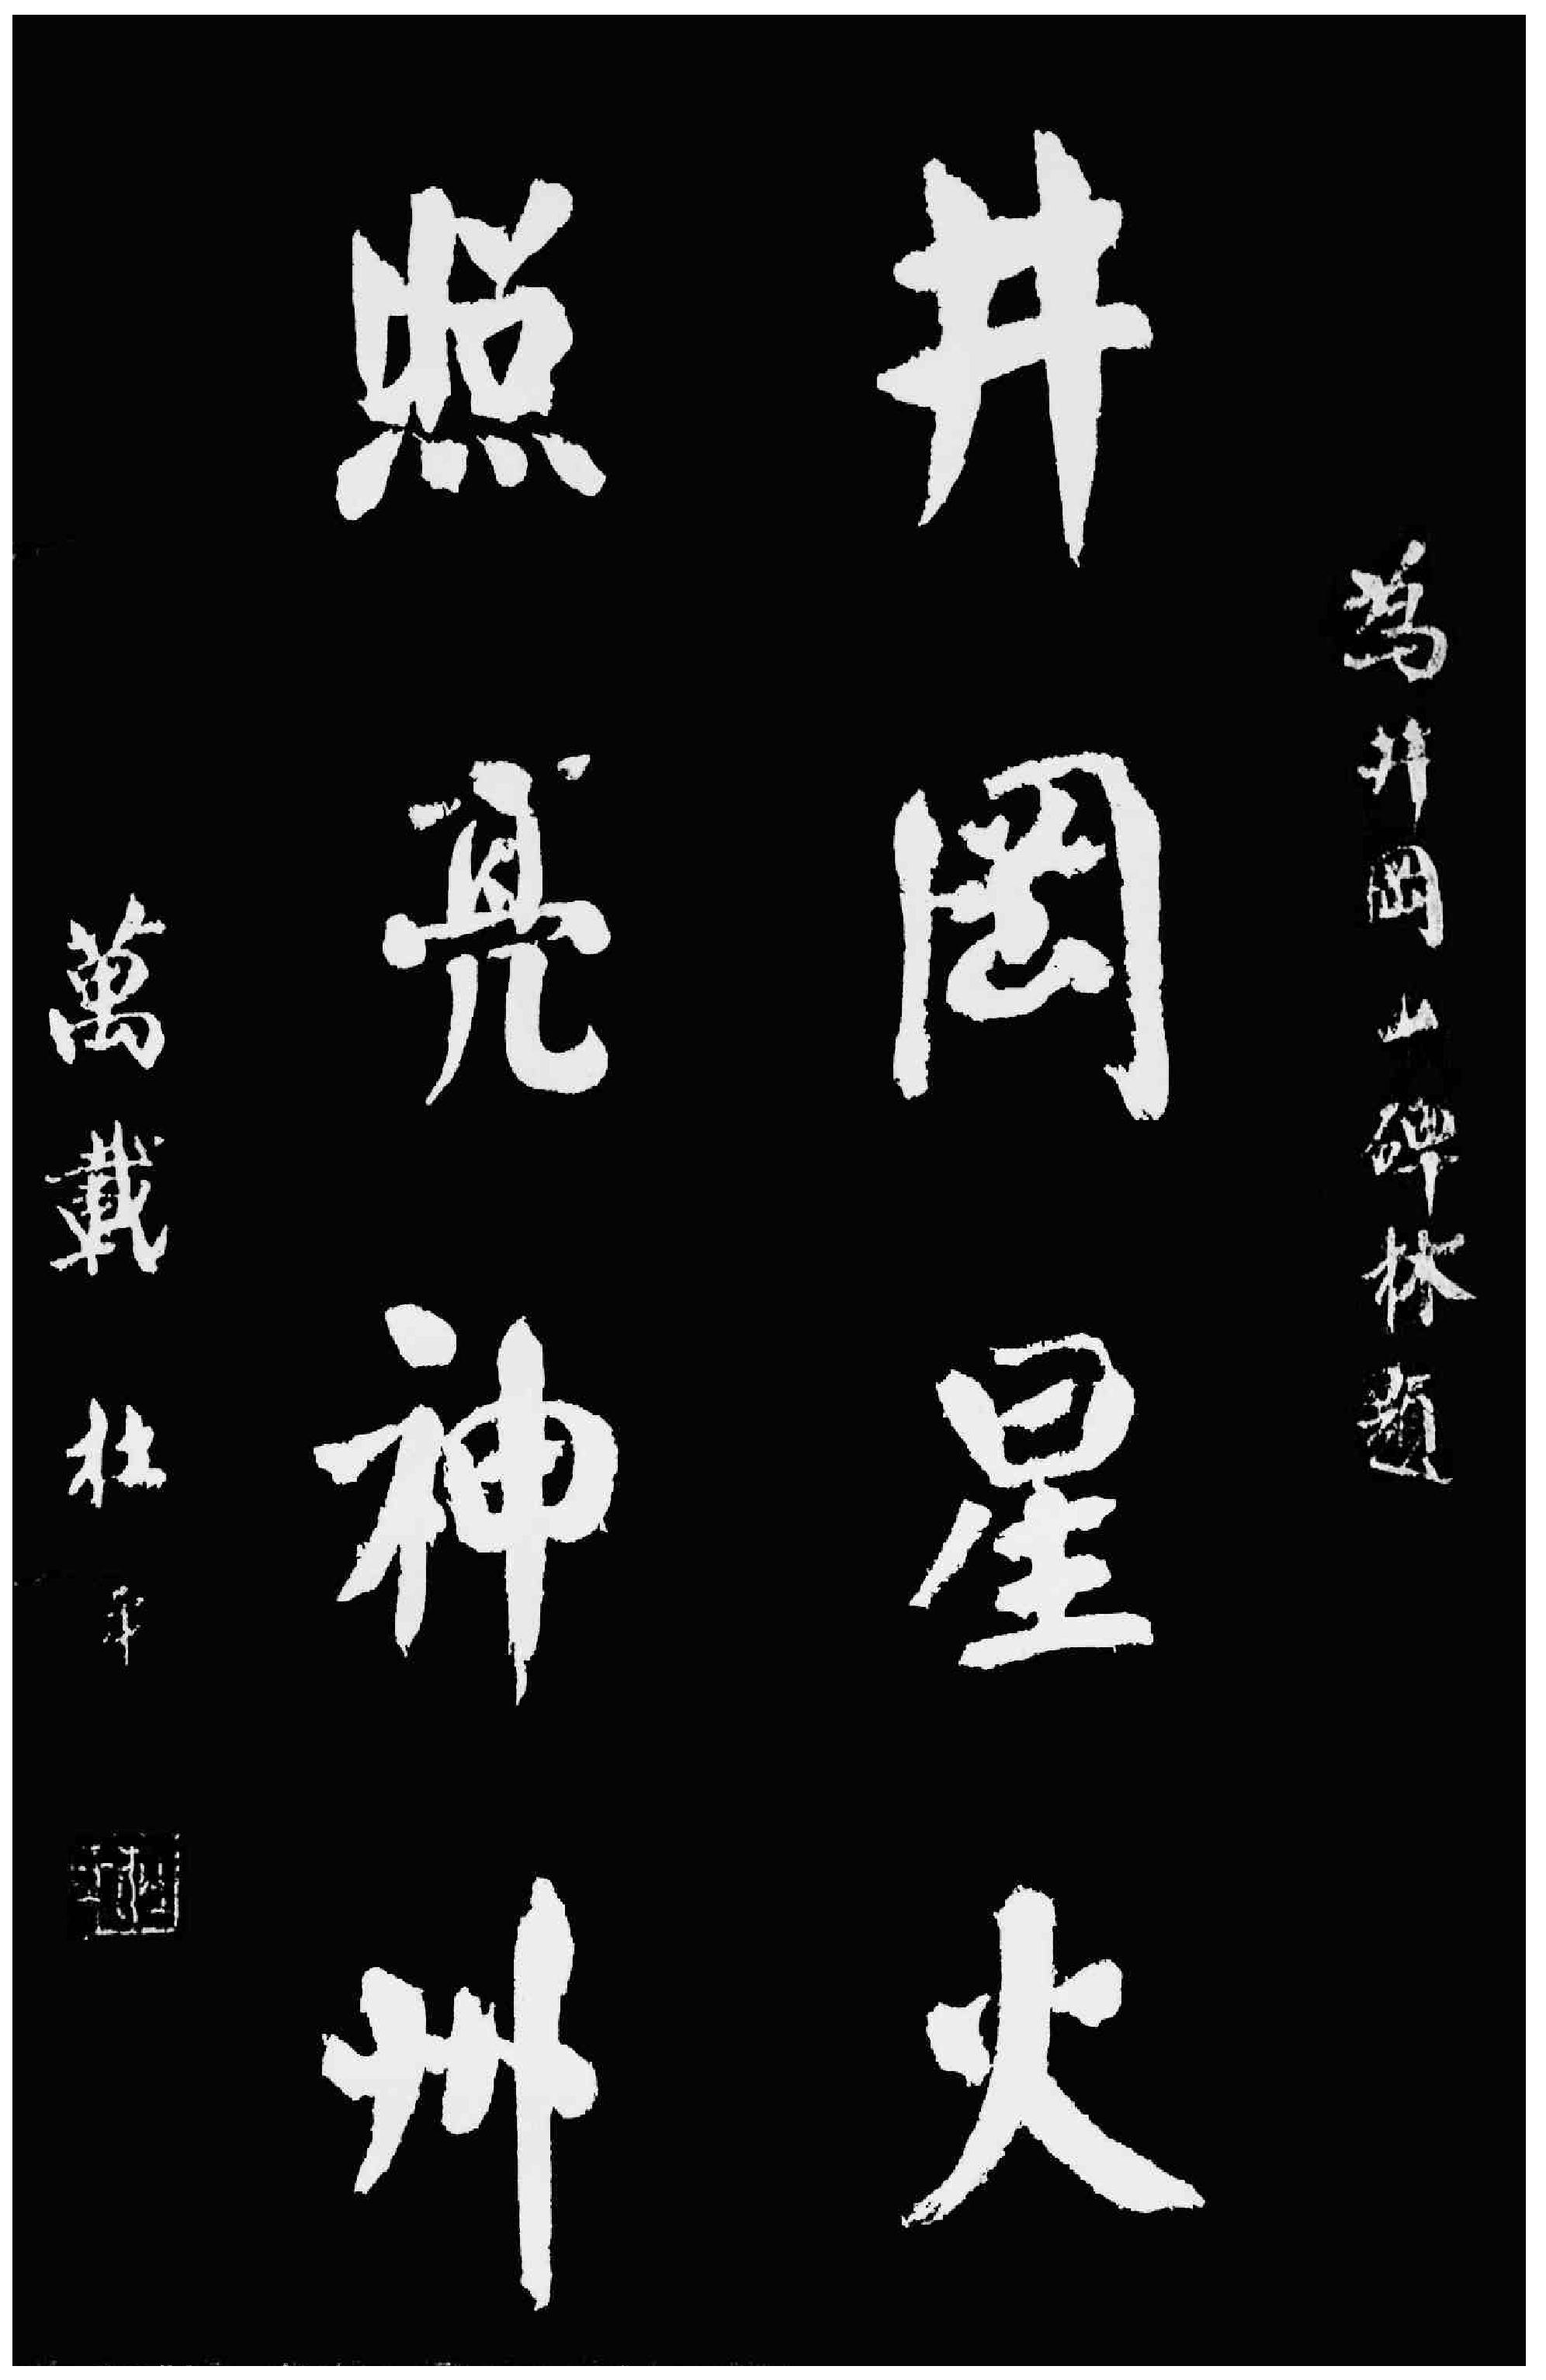 為井岡山碑林題
井岡星火
照亮神州
萬載杜平